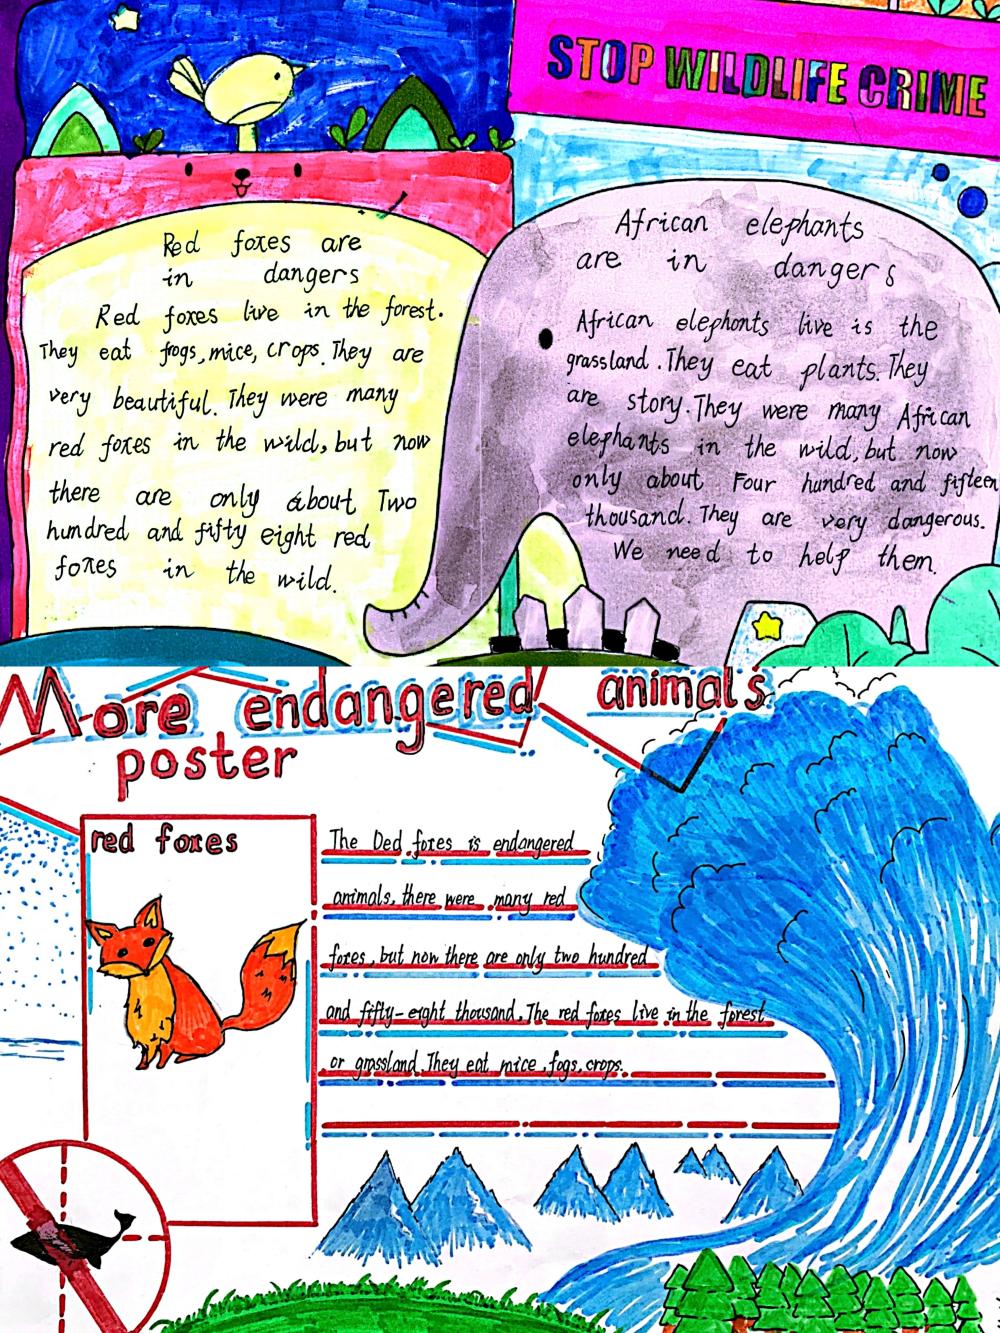 STOP WILDLIFE CRIME
Red foxes are
in dangers
Red foxes live in the forest.
They eat frogs, mice, crops. They are
very beautiful. They were many
red foxes in the wild, but now
there are only about Two
hundred and fifty eight red
foxes in the wild.
African elephants
are in dangers
African elephants live is the
grassland. They eat plants. They
are story. They were many African
elephants in the wild, but now
only about Four hundred and fifteen
thousand. They are very dangerous.
We need to help them.
More endangered animals
poster
red foxes
The Ded foxes is endangered
animals, there were many red
foxes, but now there are only two hundred
and fifty-eight thousand, The red foxes live in the forest
or grassland. They eat mice, fogs, crops.